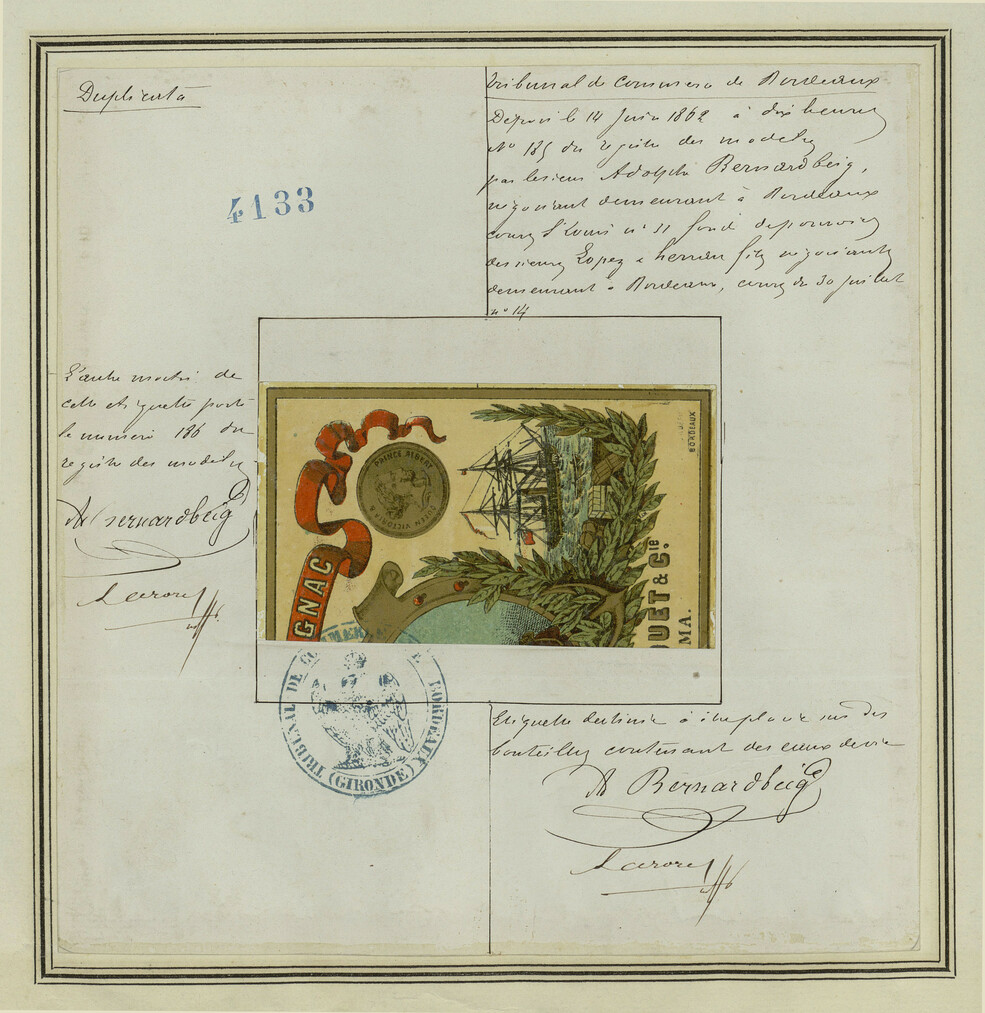 Duplicata
4133
Tribunal de Commerce de Bordeaux
Dépôt du 14 Juin 1862 à dix heures
No 185 du registre des modèles
par le sieur Adolphe Bernardbeig,
négociant demeurant à Bordeaux
cours St Louis no 11 fondé de pouvoirs
des sieurs Lopez & herran fils négociants
demeurant à Bordeaux, cours du 30 juillet
no 14
L'autre moitié de
cette étiquette porte
le numéro 186 du
registre des modèles
A Bernardbeig
BORDEAUX
PRINCE ALBERT
QUEEN VICTORIA &
GNAC
QUET & Cie
MA.
TRIBUNAL DE COMMERCE DE BORDEAUX
(GIRONDE)
Etiquette destinée à être placée sur des
bouteilles contenant des eaux de vie
A Bernardbeig